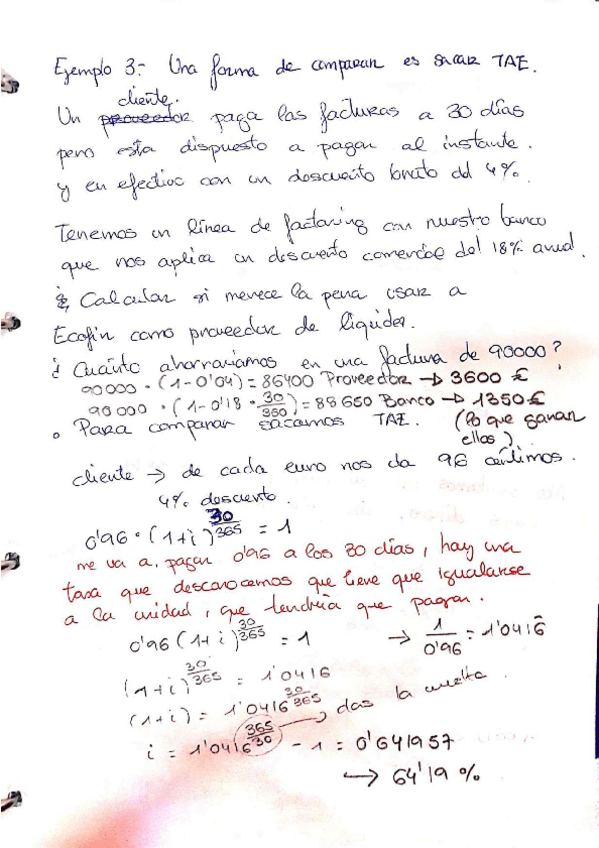 Ejemplo 3:- Una forma de comparar es sacar TAE.
cliente.
Un proveedor paga las facturas a 30 días
pero esta dispuesto a pagar al instante.
y en efectivo con un descuento bruto del 4%.
Tenemos un línea de factoring con nuestro banco
que nos aplica un descuento comercial del 18% anual.
Calcular si merece la pena usar a
Ecofin como proveedor de liquidez.
¿Cuánto ahorraríamos en una factura de 90000?
90000 · (1-0'04) = 86400 Proveedor → 3600 €
90000 · (1-0'18 · 30/360) = 88650 Banco → 1350 €
o Para comparar sacamos TAE. (lo que ganan
ellos)
cliente → de cada euro nos da 96 céntimos.
4% descuento.
0'96 · (1+i)^30/365 = 1
me va a pagar 0'96 a los 30 días, hay una
tasa que desconocemos que tiene que igualarse
a la unidad, que tendría que pagar.
0'96 (1+i)^30/365 = 1 → 1/0'96 = 1'0416
(1+i)^30/365 = 1'0416
(1+i) = 1'0416^30/365 das la vuelta.
i = 1'0416^365/30 - 1 = 0'641957
→ 64'19 %